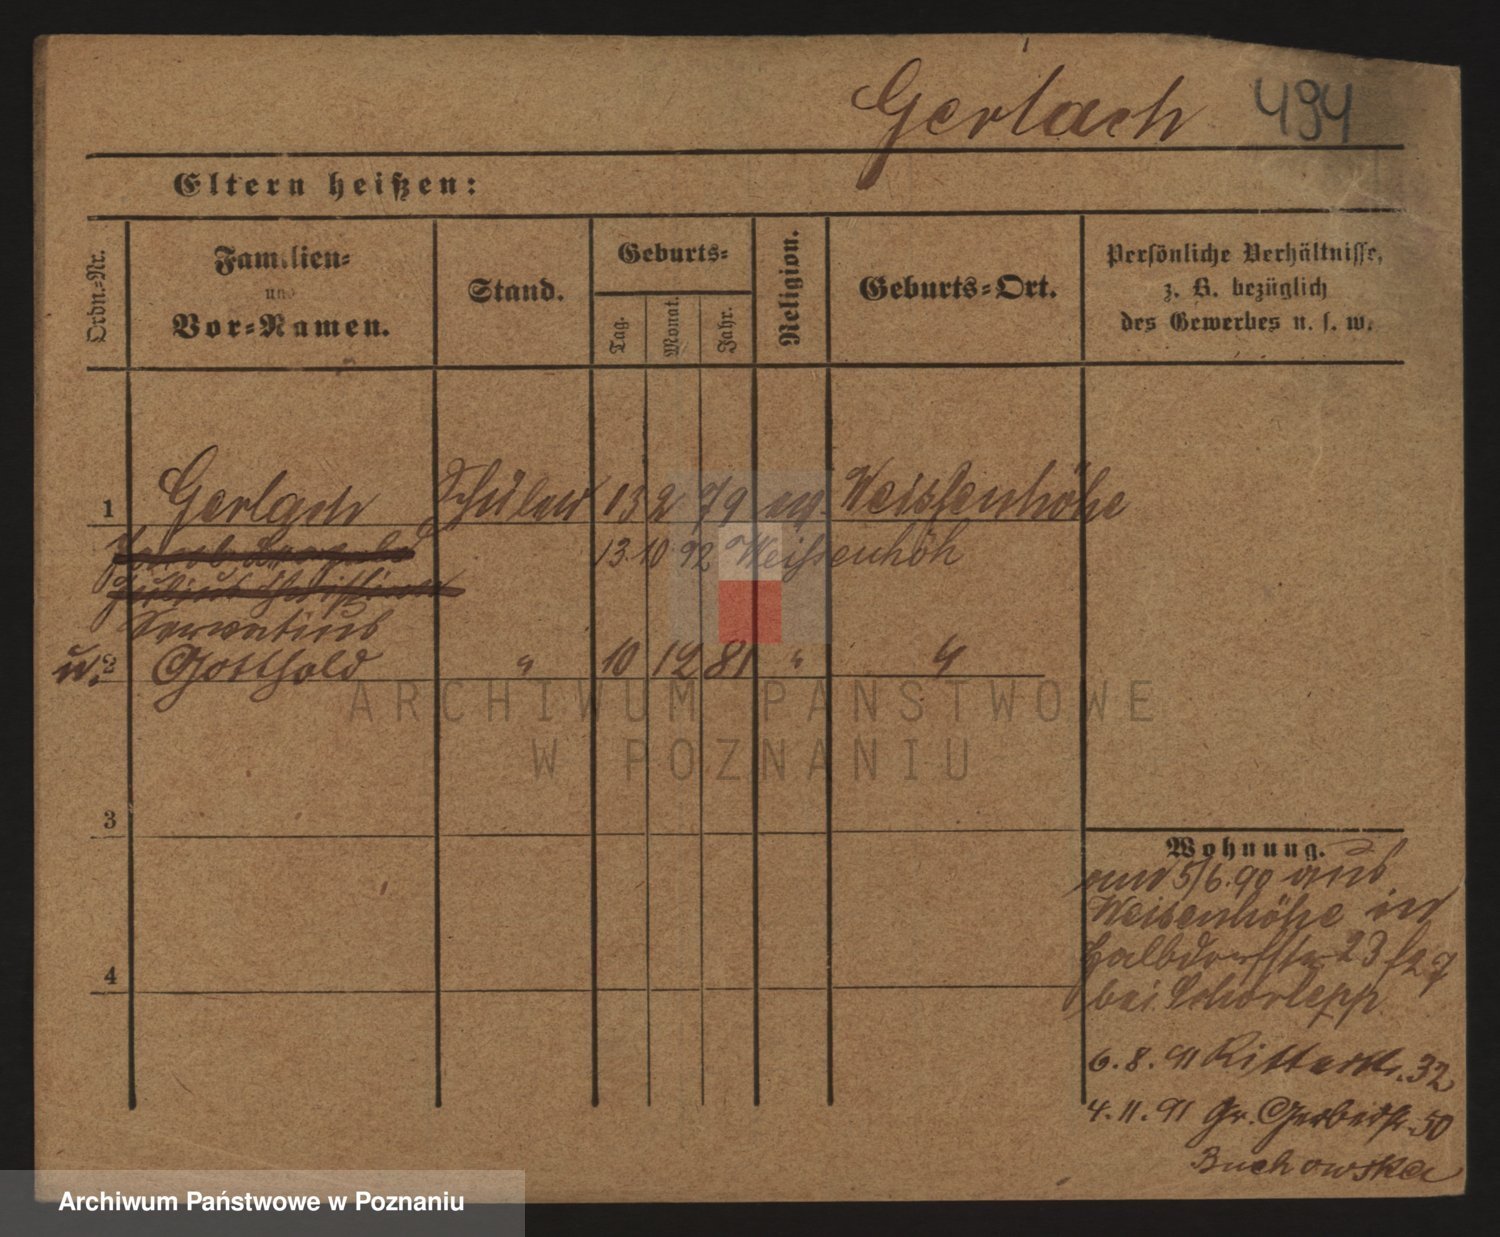 Gerlach 494
Eltern heißen:
Ordn.-Nr.
Familien-
und
Vor-Namen.
Stand.
Geburts-
Tag.
Monat.
Jahr.
Religion.
Geburts-Ort.
Persönliche Verhältnisse,
z. B. bezüglich
des Gewerbes u. s. w.
1 Gerlach Schüler 13 2 79 ev. Weissenhöhe
13. 10 92 Weissenhöh
Servatius
u. 2 Gotthold " 10 12 81 " "
3
4
Wohnung.
5/6.90 aus
Weisenhöhe in
Halbdorfstr 23
bei
6. 8. 91 Ritterstr. 32
4. 11. 91 Gr. Gerberstr. 50
Buchowska
ARCHIWUM PAŃSTWOWE
W POZNANIU
Archiwum Państwowe w Poznaniu